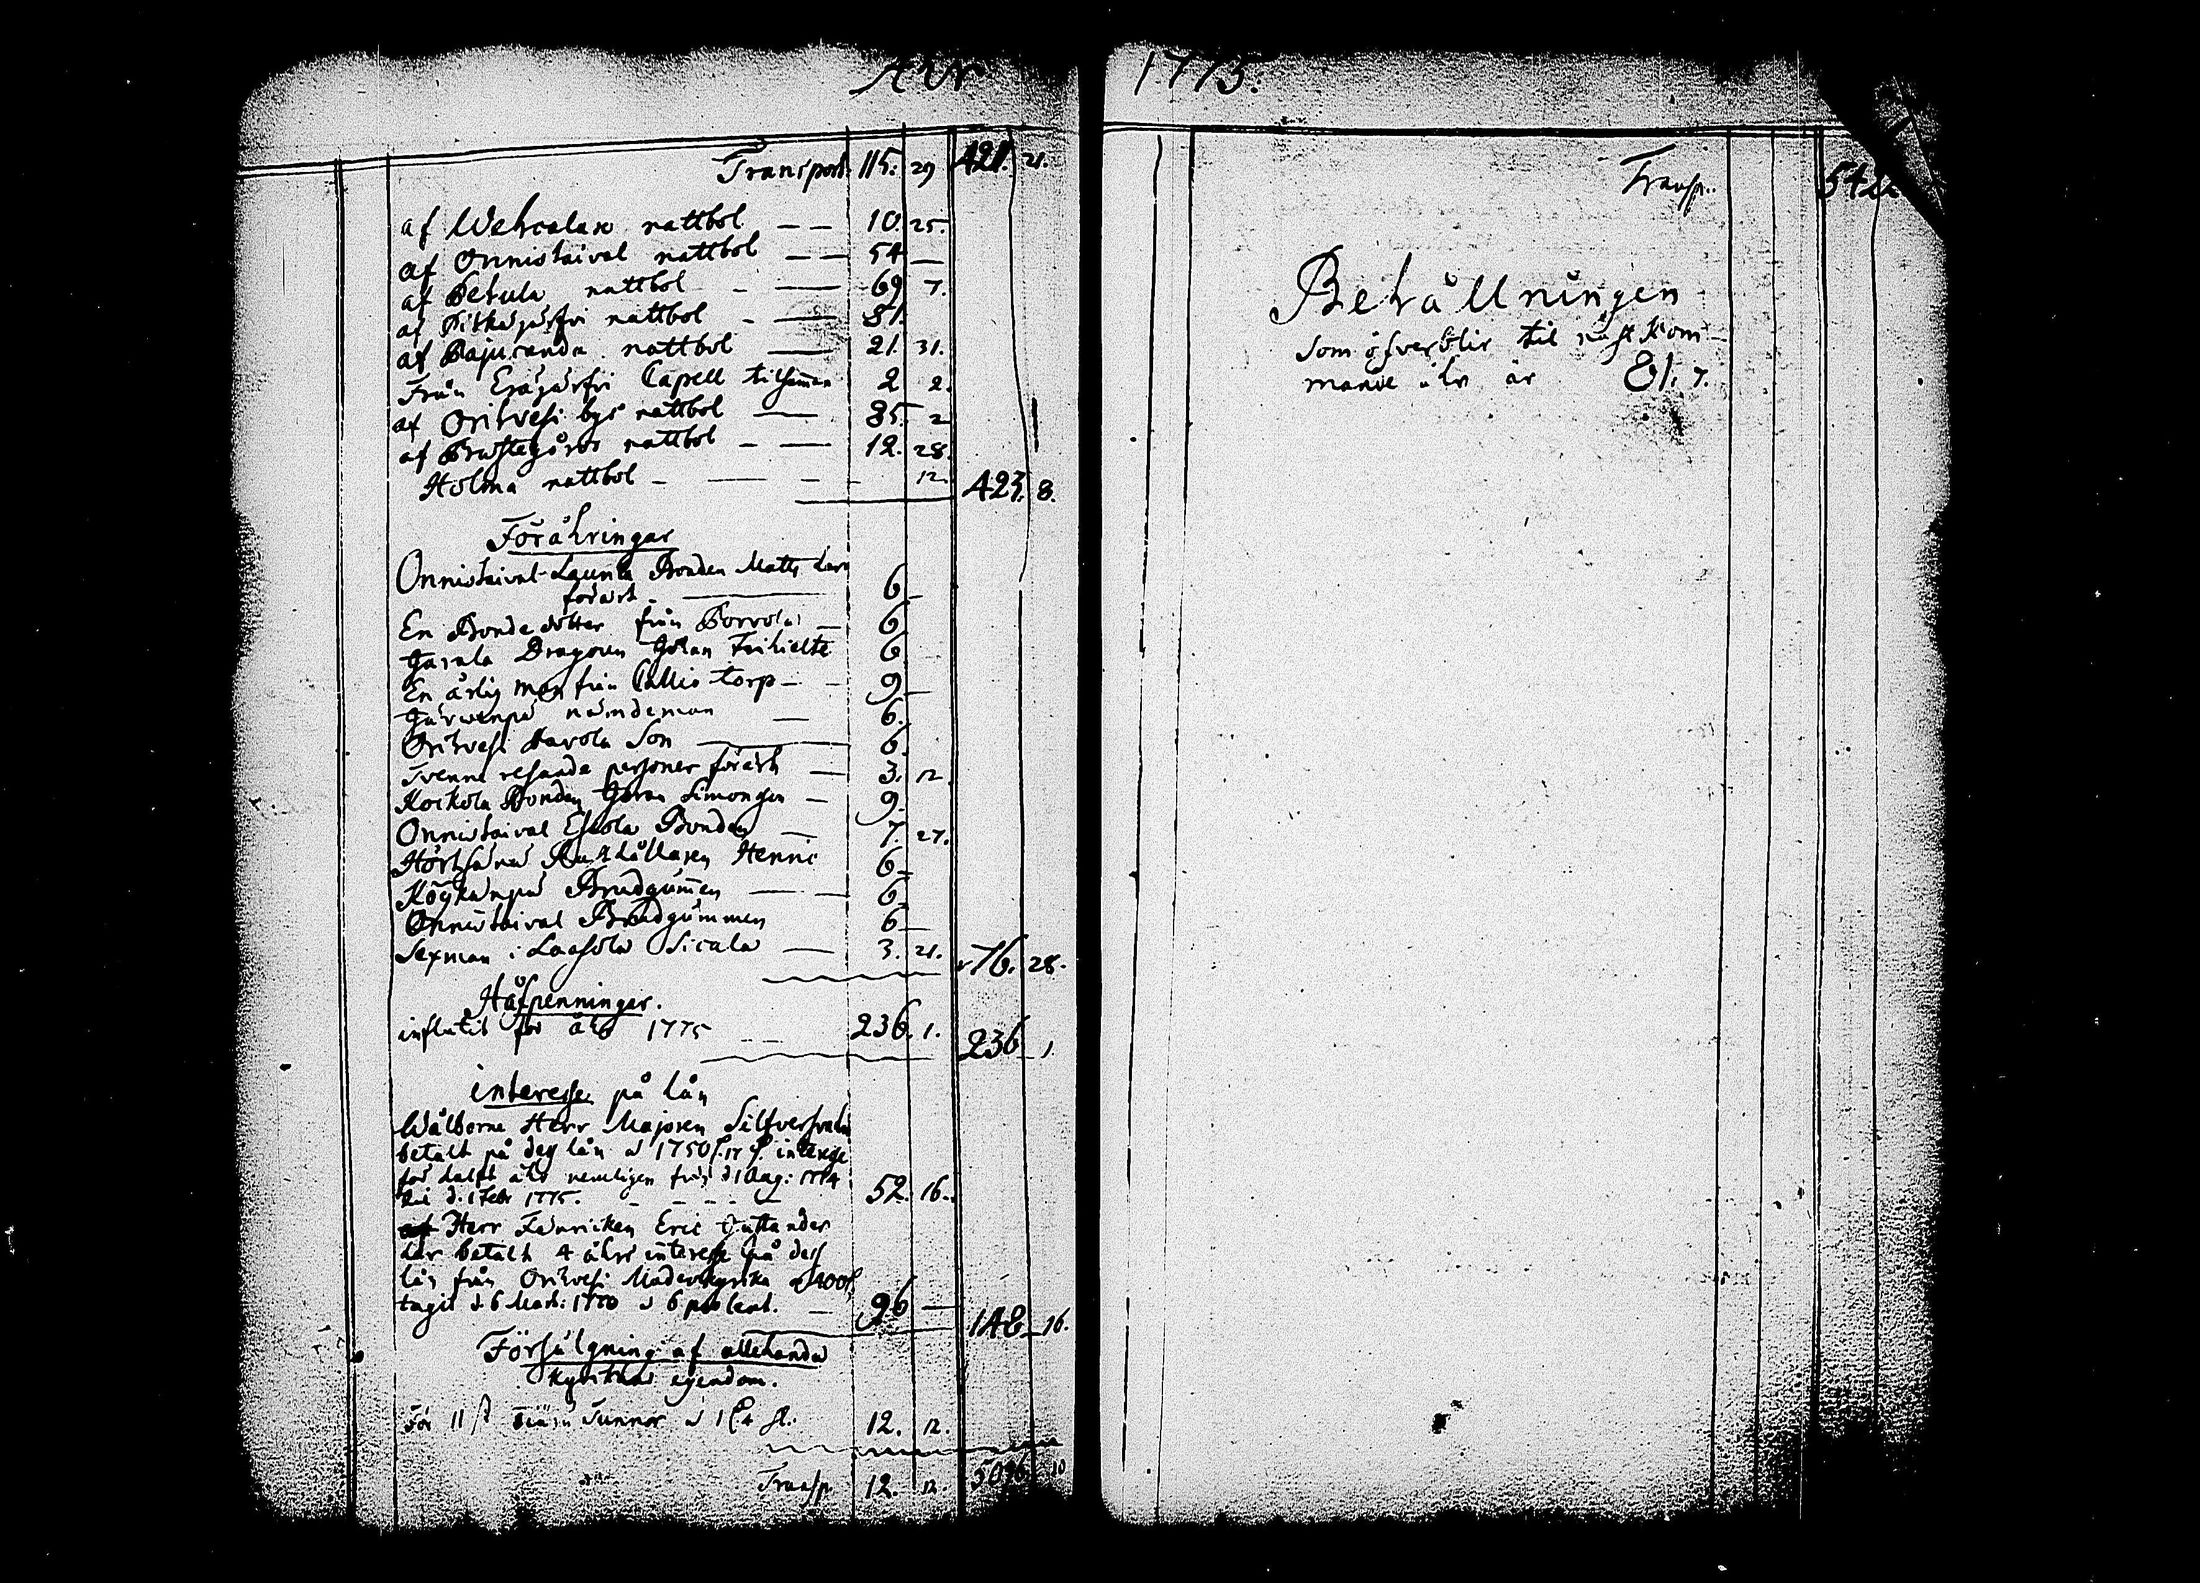 Åhr
Transport. 115. 29 421. 21.
af Wehcalax nattbol — — 10. 25.
af Onnistaival nattbol — — 54 —
af Petula nattbol - — 69 7.
af Pitkäjärfvi nattbol - — 81.
af Pajucanda nattbol — 21. 31.
Från Eräjärfvi Capell tilsamman 2 2.
af Orihvesi bys nattbol — 85. 2
af Prästegårds nattbol - — 12. 28.
Holma nattbol - — - - 12.
423. 8.
Förähringar
Onnistaival Launla Bonden Matts
förärt — 6 —
En Bonde dotter från Porvola — 6
Jarvla Dragoun Göran Frihielte 6
En ärlig man från Callio torp — - 9 —
nämdeman — 6.
Orihvesi Havola Son — 6.
Tvenne resande personer förärt — 3. 12.
Kockola Bonden Göran Simonson — 9.
Onnistaival Eskola Bonden — 7. 27.
Rusthållaren Henric 6 —
Brudgummen — — 6
Onnistaival Brudgummen 6 —
Sexman i Laasola Sicala — 3. 21.
76. 28.
Håfpenningar.
influtit för åhr 1775 236. 1.
236 1.
interesse på lån
Wälborne Herr Majoren
betalt på dess lån á 1750 interesse
för halft åhr nemligen från d. 1 Aug: 1774
til d: 1 Febr 1775. - - - - 52. 16.
Herr Fendricken Eric
har betalt 4 åhrs interesse på dess
lån från Orihvesi Moderkyrka a 400
tagit d. 6 Mart: 1770 á 6 pro Cent. — 96 —
148 — 16.
Försälgning af allehanda
kyrkans egendom.
För 11 st Tiäru Tunnor á 12. 12.
Transp 12. 12. 10
1775.
Transp..
Behållningen
Som öfverblir til nästkom-
mande åhr är 81. 7.